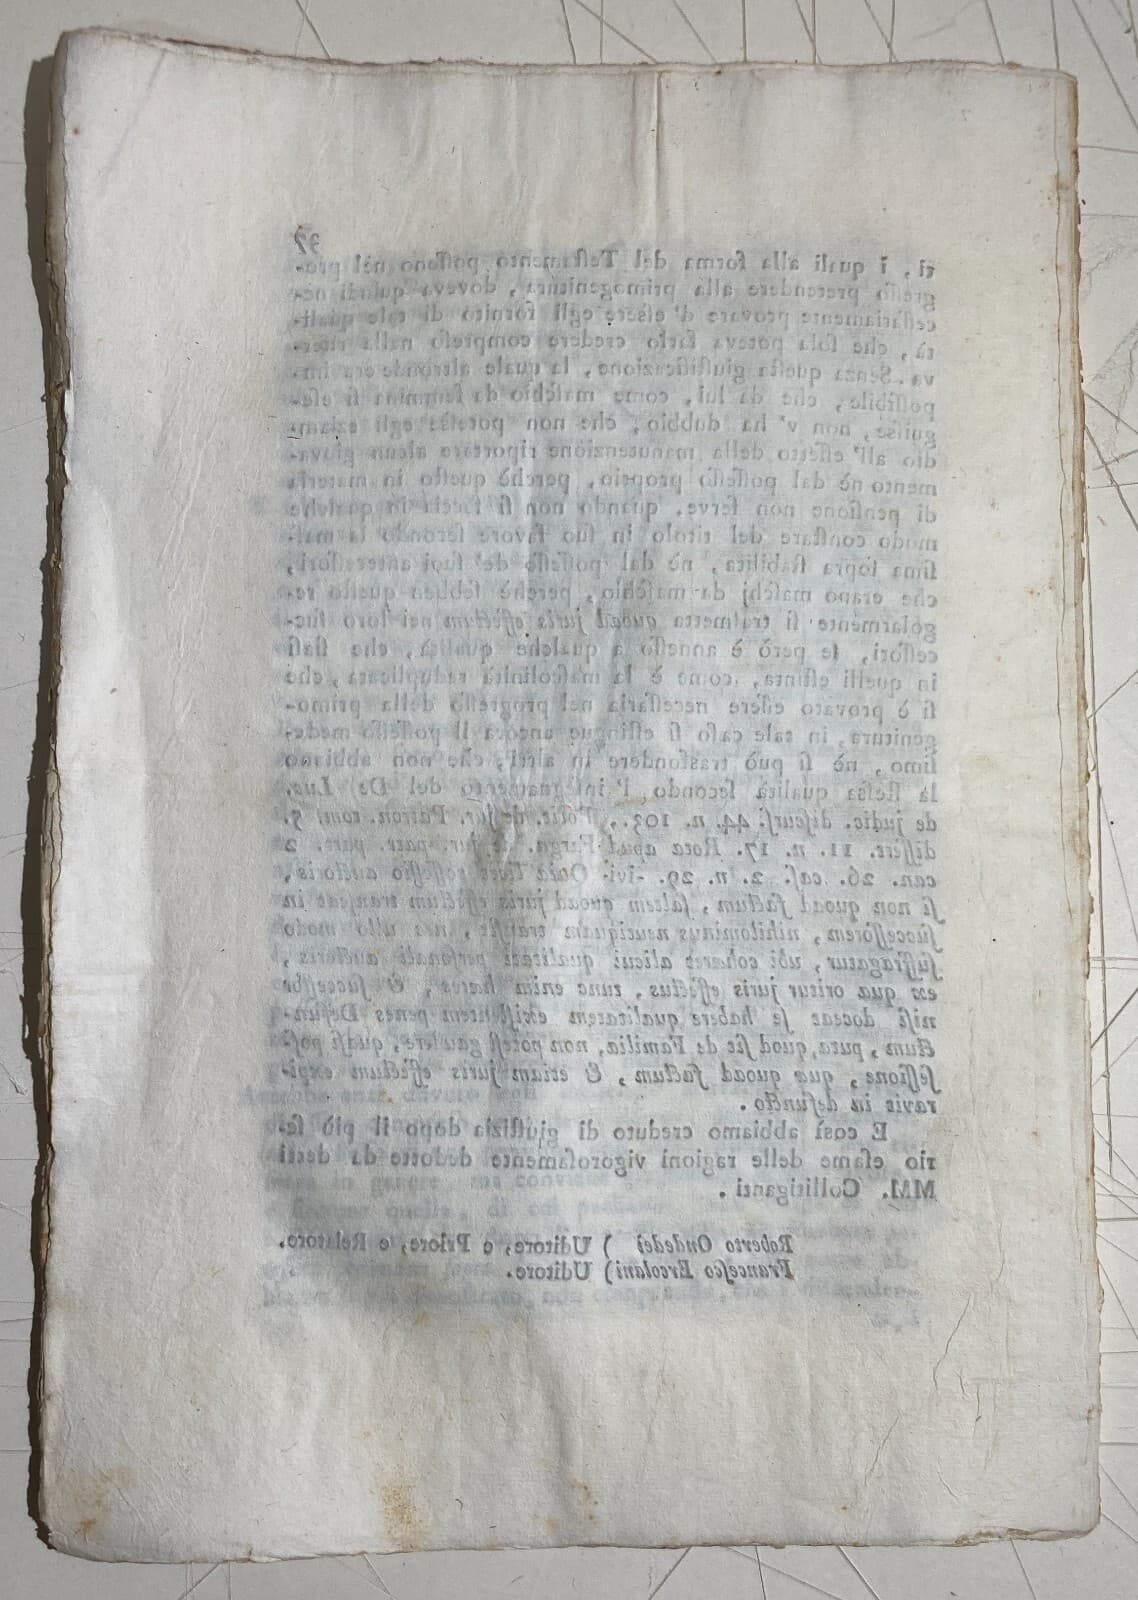 37
ti, i quali alla forma del Testamento possono nel pro-
gresso pretendere alla primogenitura, doveva quindi ne-
cessariamente provare d'essere egli fornito di tale quali-
tà, che sola poteva farlo credere compreso nella riser-
va. Senza questa giustificazione, la quale altronde era im-
possibile, che da lui, come maschio da femmina si ese-
guisse, non v'ha dubbio, che non potesse egli eziam-
dio all'effetto della manutenzione riportare alcun giova-
mento nè dal possesso proprio, perchè questo in materia
di pensione non serve, quando non si faccia in qualche
modo constare del titolo in suo favore secondo la mas-
sima sopra stabilita, nè dal possesso de' suoi antecessori,
che erano maschj da maschio, perchè sebben questo re-
golarmente si trasmetta quoad juris effectum nei loro suc-
cessori, se però è annesso a qualche qualità, che siasi
in quelli estinta, come è la mascolinità reduplicata, che
si è provato essere necessaria nel progresso della primo-
genitura, in tale caso si estingue ancora il possesso mede-
simo, nè si può trasfondere in altri, che non abbiano
la stessa qualità secondo l'insegnamento del De Luc.
de judic. discurs. 44. n. 103., Pitic. de jur. Patron. tom. 3.
dissert. 11. n. 17. Rota apud Farga. de jur. patr. part. 2
can. 26. cas. 2. n. 29. ivi- Quia licet possessio auctoris,
si non quoad factum, saltem quoad juris effectum transeat in
successorem, nihilominus neutiquam transit, nec ullo modo
suffragatur, ubi cohæret alicui qualitati personali auctoris,
ex qua oritur juris effectus, tunc enim hæres, & successor
nisi doceat se habere qualitatem existentem penes Defun-
ctum, puta, quod sit de Familia, non potest gaudere, quasi pos-
sessione, quæ quoad factum, & etiam juris effectum expi-
ravit in defuncto.
E così abbiamo creduto di giustizia dopo il più se-
rio esame delle ragioni vigorosamente dedotte da detti
MM. Collitiganti.
Roberto Ondedei ) Uditore, e Priore, e Relatore.
Francesco Ercolani ) Uditore.